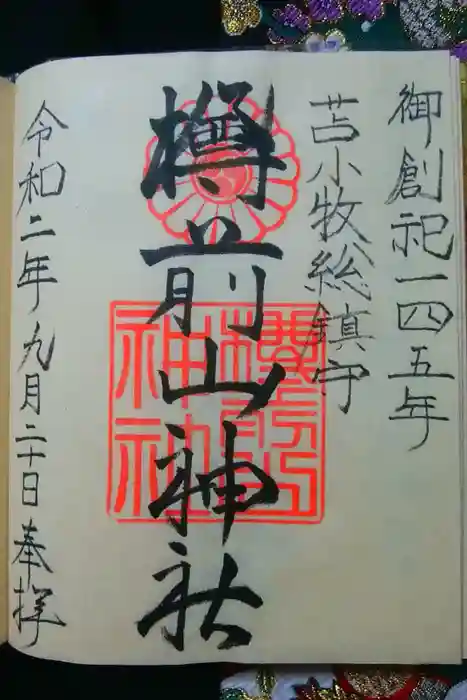 御創祀一四五年
苫小牧総鎮守
樽前山神社
樽前山神社
令和二年九月二十日奉拝